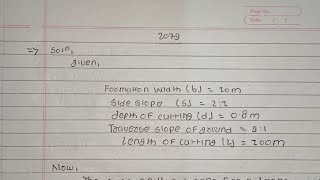 2079
=> Soln,
given,
Formation width (b) = 10m
Side slope (s) = 2:1
depth of cutting (d) = 0.8m
Traverse slope of ground = 9:1
length of cutting (L) = 200m
Now,